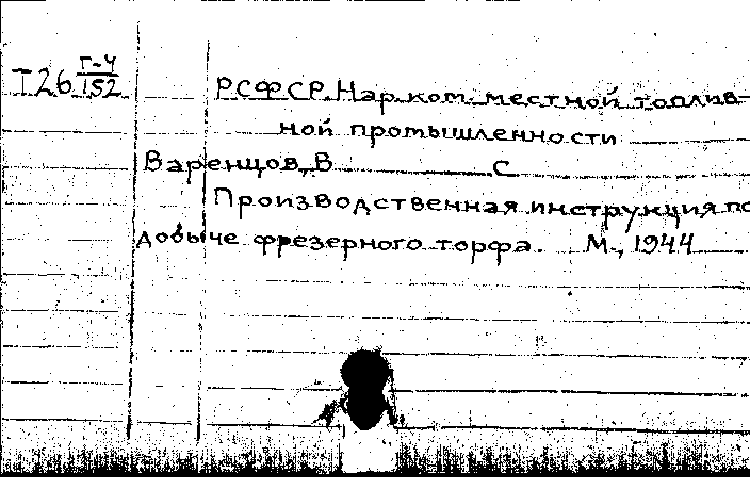 Т26 Г-4/152
РСФСР. Нар. ком. местной топлив-
ной промышленности
Варенцов, В. С
Производственная инструкция по
добыче фрезерного торфа. М., 1944